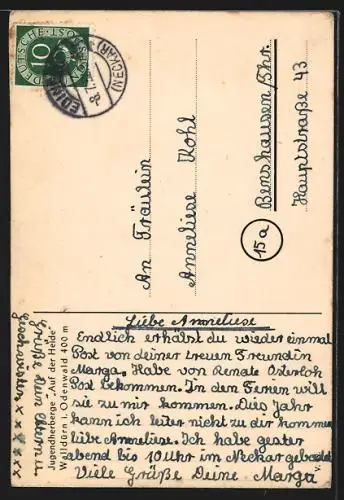 DEUTSCHE BUNDESPOST
10
EDINGEN
(NECKAR)
An Fräulein
Anneliese Kohl
15a
Benshausen/Thr.
Hauptstraße 43
Jugendherberge „Auf der Heide"
Walldürn i. Odenwald 400 m
Liebe Anneliese
Endlich erhälst du wieder einmal
Post von deiner treuen Freundin
Marga. Habe von Renate Osterloh
Post bekommen. In den Ferien will
sie zu mir kommen. Dies Jahr
kann ich leiter nicht zu dir kommen
liebe Anneliese. Ich habe gester
abend bis 10 Uhr im Neckar gebadet
Viele Grüße Deine Marga
Grüße dein Eltern u
Geschwister x x x x x